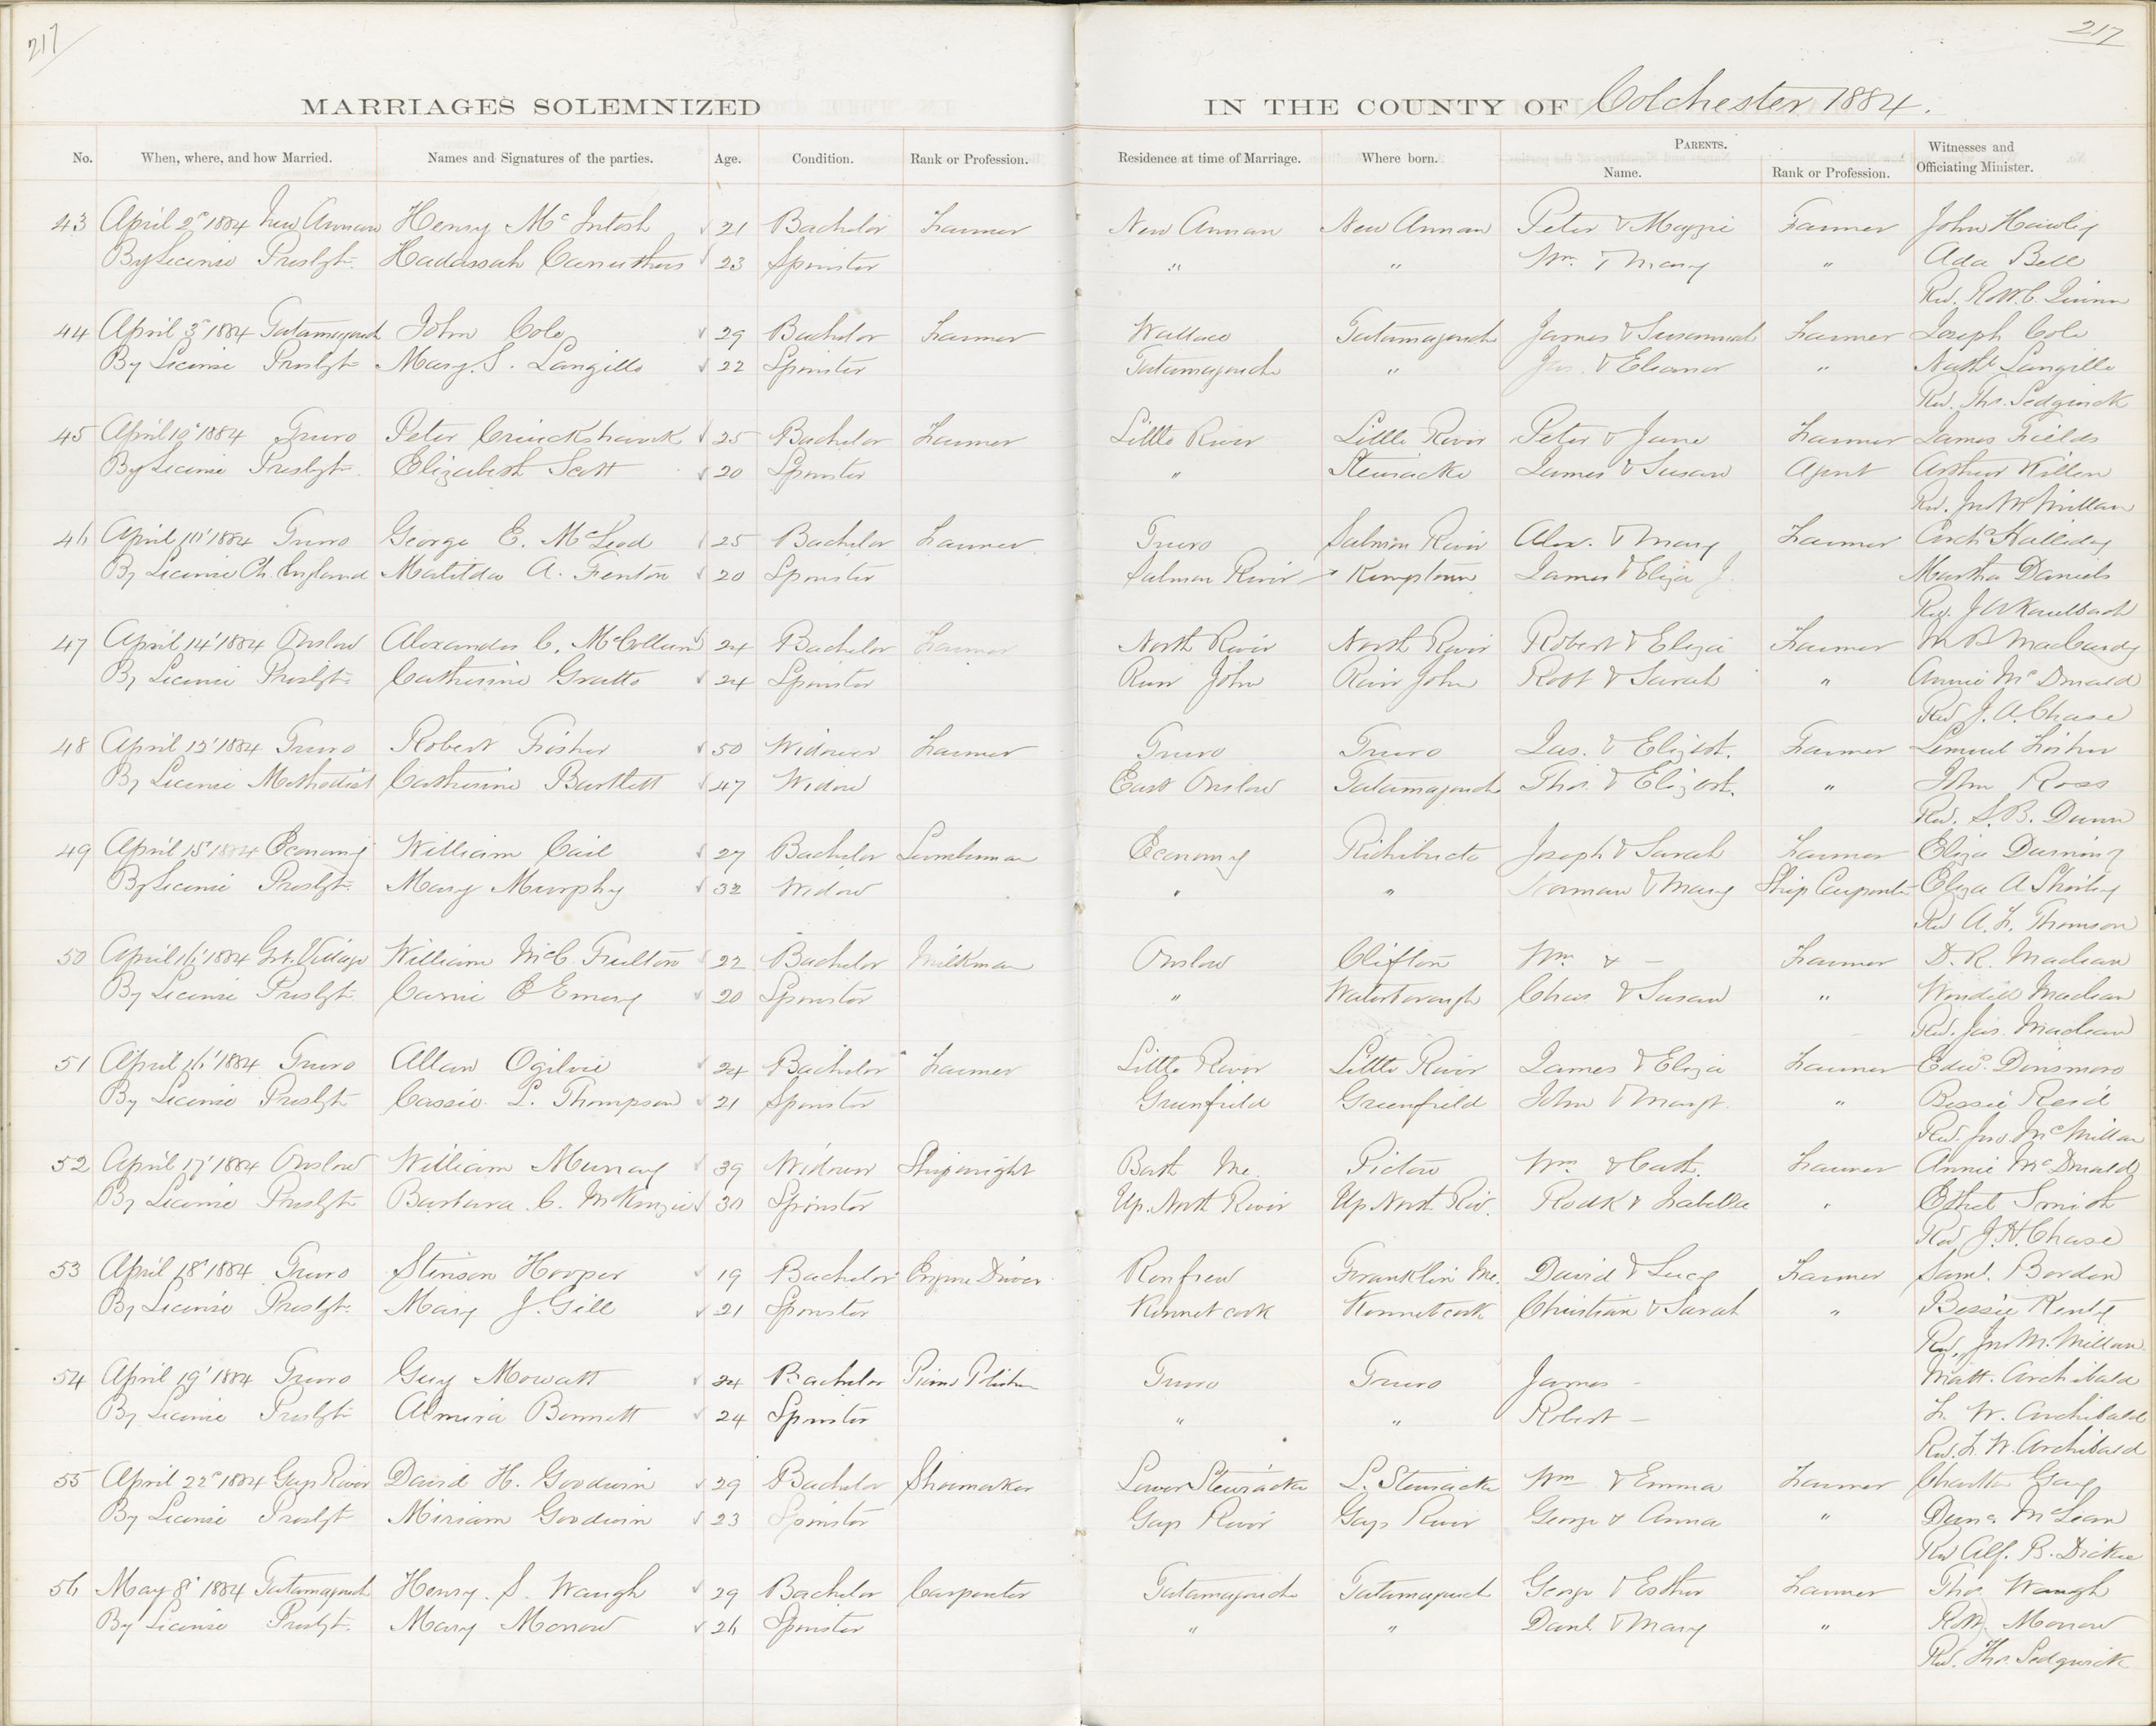 217
217
MARRIAGES SOLEMNIZED IN THE COUNTY OF Colchester 1884.
No. When, where, and how Married. Names and Signatures of the parties. Age. Condition. Rank or Profession. Residence at time of Marriage. Where born. PARENTS. Name. Rank or Profession. Witnesses and Officiating Minister.
43 April 2" 1884 New Annan Henry McIntosh 21 Bachelor Farmer New Annan New Annan Peter & Maggie Farmer John
By License Presbyt. Hadassah Carruthers 23 Spinster " " Wm. & Mary " Ada Bell
Rev. Quinn
44 April 3" 1884 Tatamagouch John Cole 29 Bachelor Farmer Wallace Tatamagouch James & Susannah Farmer Joseph Cole
By License Presbyt Mary S. Langille 22 Spinster Tatamagouch " Jas. & Eleanor " Nathl Langille
Rev. Thos. Sedgwick
45 April 10' 1884 Truro Peter Cruickshank 25 Bachelor Farmer Little River Little River Peter & Jane Farmer James Fields
By License Presbyt Elizabeth Scott 20 Spinster " Stewiacke James & Susan Agent Arthur Killen
Rev. Jno McMillan
46 April 10' 1884 Truro George E. McLeod 25 Bachelor Farmer Truro Salmon River Alex. & Mary Farmer Archd Halliday
By License Ch. England Matilda A. Fenton 20 Spinster Salmon River Kemptown James & Eliza J. Martha Daniels
Rev. J A Kaulbach
47 April 14' 1884 Onslow Alexander C. McCollum 24 Bachelor Farmer North River North River Robert & Eliza Farmer M B MacCurdy
By License Presbyt. Catherine Gratto 24 Spinster River John River John Robt & Sarah " Annie McDonald
Rev J. A. Chase
48 April 12' 1884 Truro Robert Fisher 50 Widower Farmer Truro Truro Jas. & Elizbt. Farmer Lemuel Fisher
By License Methodist Catherine Bartlett 47 Widow East Onslow Tatamagouch Thos. & Elizbt. " John Ross
Rev. S. B. Dunn
49 April 15' 1884 Economy William Cail 27 Bachelor Lumberman Economy Richibucto Joseph & Sarah Farmer Eliza
By License Presbyt. Mary Murphy 32 Widow " " Norman & Mary Ship Carpenter Eliza A
Rev A. F. Thomson
50 April 16' 1884 Grt. Village William McC. Fulton 22 Bachelor Milkman Onslow Clifton Wm & — Farmer D. R. Maclean
By License Presbyt Carrie B Emery 20 Spinster " Waterborough Chas & Susan " Maclean
Rev. Jas. Maclean
51 April 16' 1884 Truro Allan Ogilvie 24 Bachelor Farmer Little River Little River James & Eliza Farmer Edwd. Dinsmore
By License Presbyt Cassie L. Thompson 21 Spinster Greenfield Greenfield John & Margt. " Bessie Reid
Rev. Jno. McMillan
52 April 17' 1884 Onslow William Murray 39 Widower Shipwright Bath Me. Pictou Wm & Cath. Farmer Annie McDonald
By License Presbyt Barbara C. McKenzie 30 Spinster Up. North River Up North Riv. Rodk & Isabella " Ethel Smith
Rev J. H. Chase
53 April 18' 1884 Truro Stinson Hooper 19 Bachelor Engine Driver Renfrew Franklin Me. David & Lucy Farmer Saml. Borden
By License Presbyt. Mary J. Gill 21 Spinster Kennetcook Kennetcook Christian & Sarah " Bessie Kent
Rev. Jno McMillan
54 April 19' 1884 Truro Guy Mowatt 24 Bachelor Truro Truro James - Matt. Archibald
By License Presbyt Almira Bennett 24 Spinster " " Robert — F. W. Archibald
Rev. F. W. Archibald
55 April 22" 1884 Gays River David H. Goodwin 29 Bachelor Shoemaker Lower Stewiacke L. Stewiacke Wm & Emma Farmer Gay
By License Presbyt Miriam Goodwin 23 Spinster Gays River Gays River George & Anna " McLean
Rev Alf. B. Dickie
56 May 8' 1884 Tatamagouch Henry. S. Waugh 29 Bachelor Carpenter Tatamagouch Tatamagouch George & Esther Farmer Thos. Waugh
By License Presbyt. Mary Morrow 26 Spinster " " Danl. & Mary " Robt. Morrow
Rev. Thos. Sedgwick